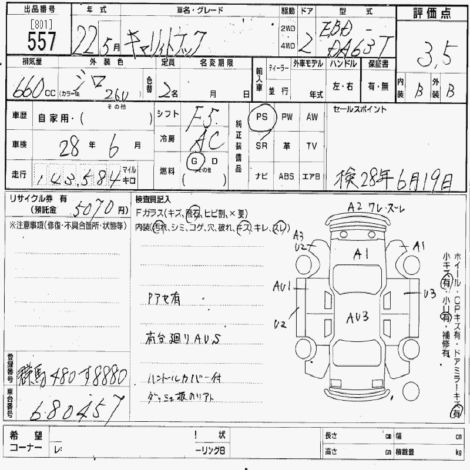 出品番号 [801] 557
年式 22年 5月
車名・グレード キャリィトラック
駆動 2WD 4WD
ドア 2
型式 EBD- DA63T
評価点 3.5
排気量 660cc
外装色 シロ (カラー№ 26U)
色替
定員 2名
名変期限 月 日
輸入車 ディーラー 並行
外車モデル 年式
ハンドル 左・右
保証書 有・無
内装 B
外装 B
車歴 自家用・( ) その他
車検 28年 6月
走行 143,584 マイル キロ
シフト F5
冷房 AC
燃料 G D (その他)
純正装備品
PS PW AW
SR 革 TV
ナビ ABS エアB
セールスポイント
検28年6月19日
リサイクル券 有 (預託金 5070円)
※注意事項(修復・不具合箇所・状態等)
検査員記入
Fガラス(キズ、飛石、ヒビ割、×要)
内装(汚れ、シミ、コゲ、穴、破れ、キズ、キレ、スレ)
Pアセ有
荷台廻りAUS
ハンドルカバー付
A2
A3
U2
A1
A1
AU1
U3
U2
AU3
ホイール・CPキズ有・ドアミラーキズ有
小キズ有・小U有・補修有
登録番号 群馬480す8880
車台番号 680457
希望コーナー
レ:
! 状
ーリングB
長さ cm
幅 cm
高さ cm
積載量 kg